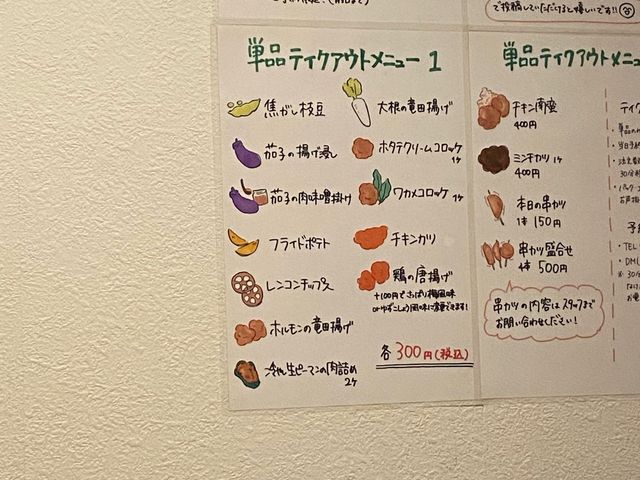 で投稿していただけると嬉しいです!!
単品テイクアウトメニュー 1
焦がし枝豆
茄子の揚げ浸し
茄子の肉味噌掛け
フライドポテト
レンコンチップス
ホルモンの竜田揚げ
冷やし生ピーマンの肉詰め
2ヶ
大根の竜田揚げ
ホタテクリームコロッケ
1ヶ
ワカメコロッケ 1ヶ
チキンカツ
鶏の唐揚げ
+100円でさっぱり梅風味
orゆずこしょう風味に変更できます!
各300円(税込)
単品テイクアウトメニュ
チキン南蛮
400円
ミンチカツ 1ヶ
400円
本日の串カツ
1本 150円
串カツ盛合せ
4本 500円
串カツの内容はスタッフまで
お問い合わせください!
テイク
・単品の
・当日予約
30分前
予約
・TEL
・DM(
※30分